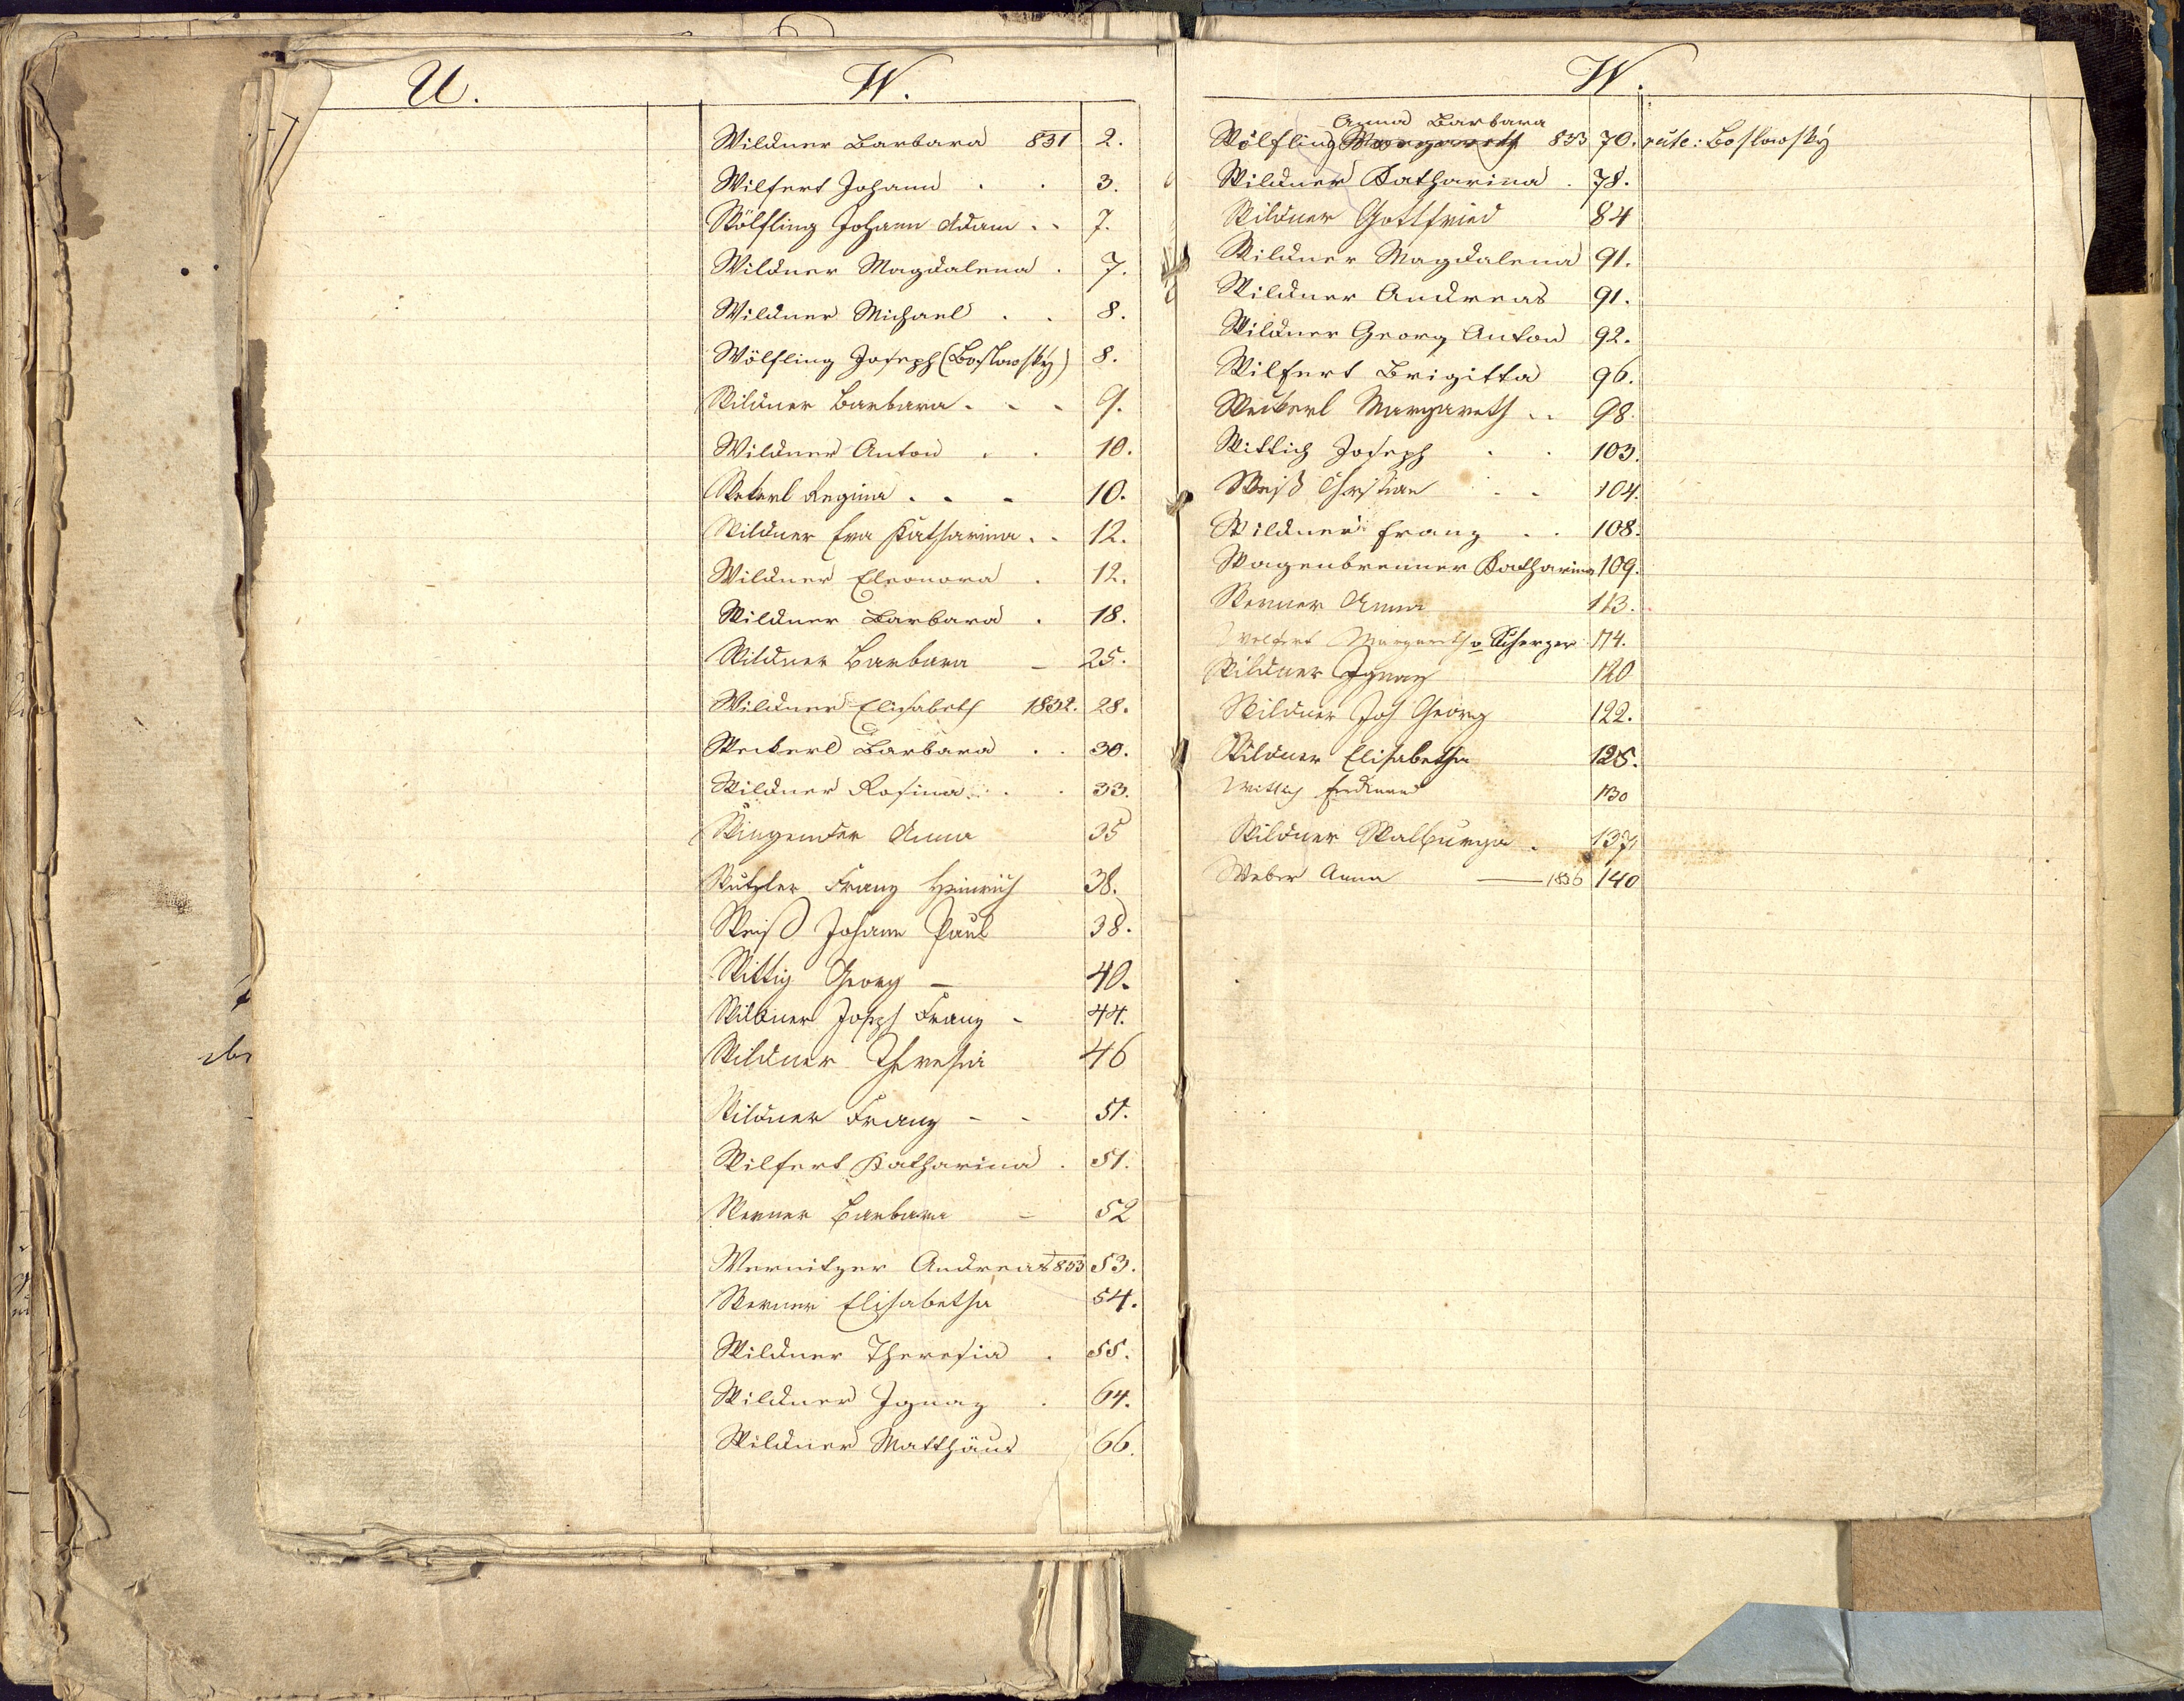 U.
W.
Wildner Barbara 831 2.
Wilfert Johann . . 3.
Wölfling Johann Adam . . 7.
Wildner Magdalena . 7.
Wildner Michael . . 8.
Wölfling Joseph (Boslowsky) 8.
Wildner Barbara . . . 9.
Wildner Anton . . 10.
Regina . . . 10.
Wildner Eva Katharina . . 12.
Wildner Eleonora . 12.
Wildner Barbara . 18.
Wildner Barbara – 25.
Wildner Elisabeth 1832. 28.
Weikerl Barbara . . 30.
Wildner Rosina . . . 33.
Anna 35
Franz Heinrich 38.
Weiß Johann Paul 38.
Wittig Georg – 40.
Wildner Joseph Franz – 44.
Wildner Theresia 46
Wildner Franz – – 51.
Wilfert Katharina . 51.
Werner Barbara – 52
Wernitzer Andreas 833 53.
Werner Elisabetha 54.
Wildner Theresia . 55.
Wildner Ignaz . 64.
Wildner Matthäus 66.
W.
Anna Barbara
Wölfling Margareth 833 70. recte: Boslowsky
Wildner Katharina . 78.
Wildner Gottfried 84
Wildner Magdalena 91.
Wildner Andreas 91.
Wildner Georg Anton 92.
Wilfert Brigitta 96.
Weikerl Margareth . . 98.
Wittich Joseph . . 103.
Weiß Christian . . 104.
Wildner Franz . . 108.
Wagenbrenner Katharina 109.
Werner Anna 113.
Wolfert Margareth v Scherzer 114.
Wildner Ignaz 120
Wildner Joh Georg 122.
Wildner Elisabetha 125.
Wittich Ferdinand 130
Wildner Walburga . 137
Weber Anna — 1836 140